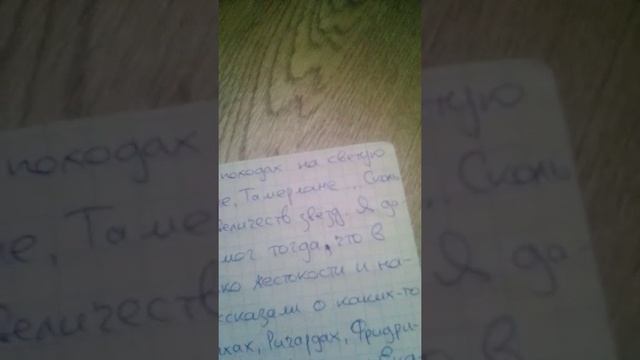 походах на святую
е, Тамерлане... Сколь
величеств звезд. Я до-
мог тогда, что в
ко жестокости и на-
ссказали о каких-то
хах, Ричардах, Фридри-